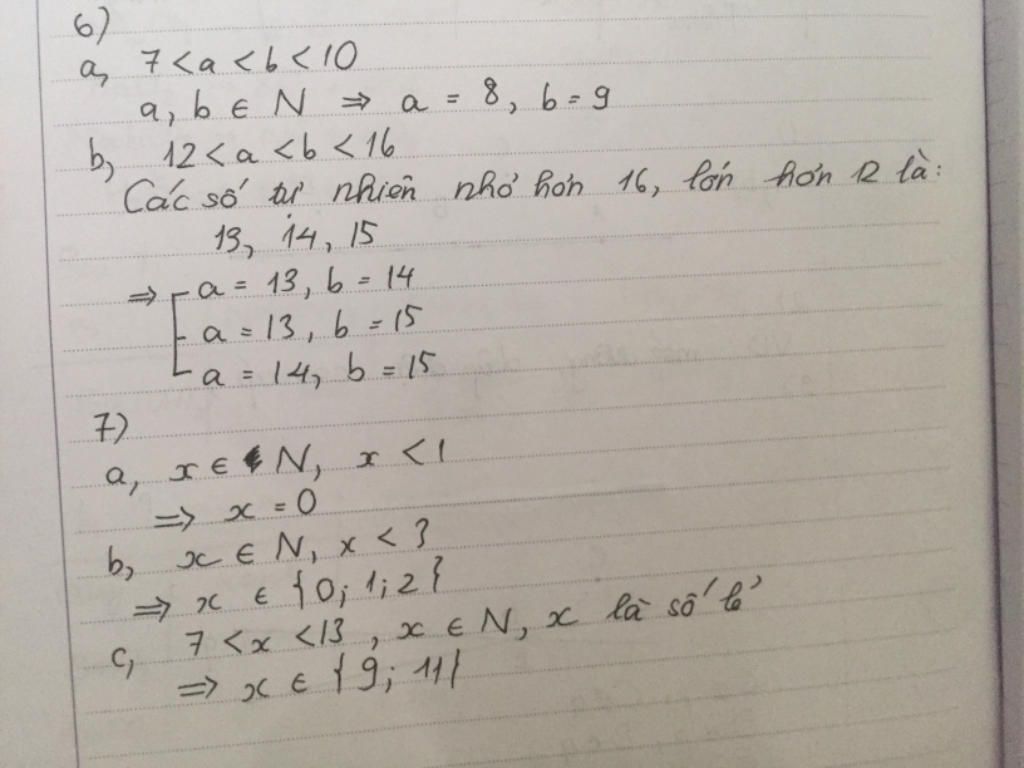 6)
a, 7 < a < b < 10
a, b ∈ N ⇒ a = 8, b = 9
b, 12 < a < b < 16
Các số tự nhiên nhỏ hơn 16, lớn hơn 12 là:
13, 14, 15
⇒ [ a = 13, b = 14
a = 13, b = 15
a = 14, b = 15
7)
a, x ∈ N, x < 1
⇒ x = 0
b, x ∈ N, x < 3
⇒ x ∈ {0; 1; 2}
c, 7 < x < 13, x ∈ N, x là số lẻ
⇒ x ∈ {9; 11}